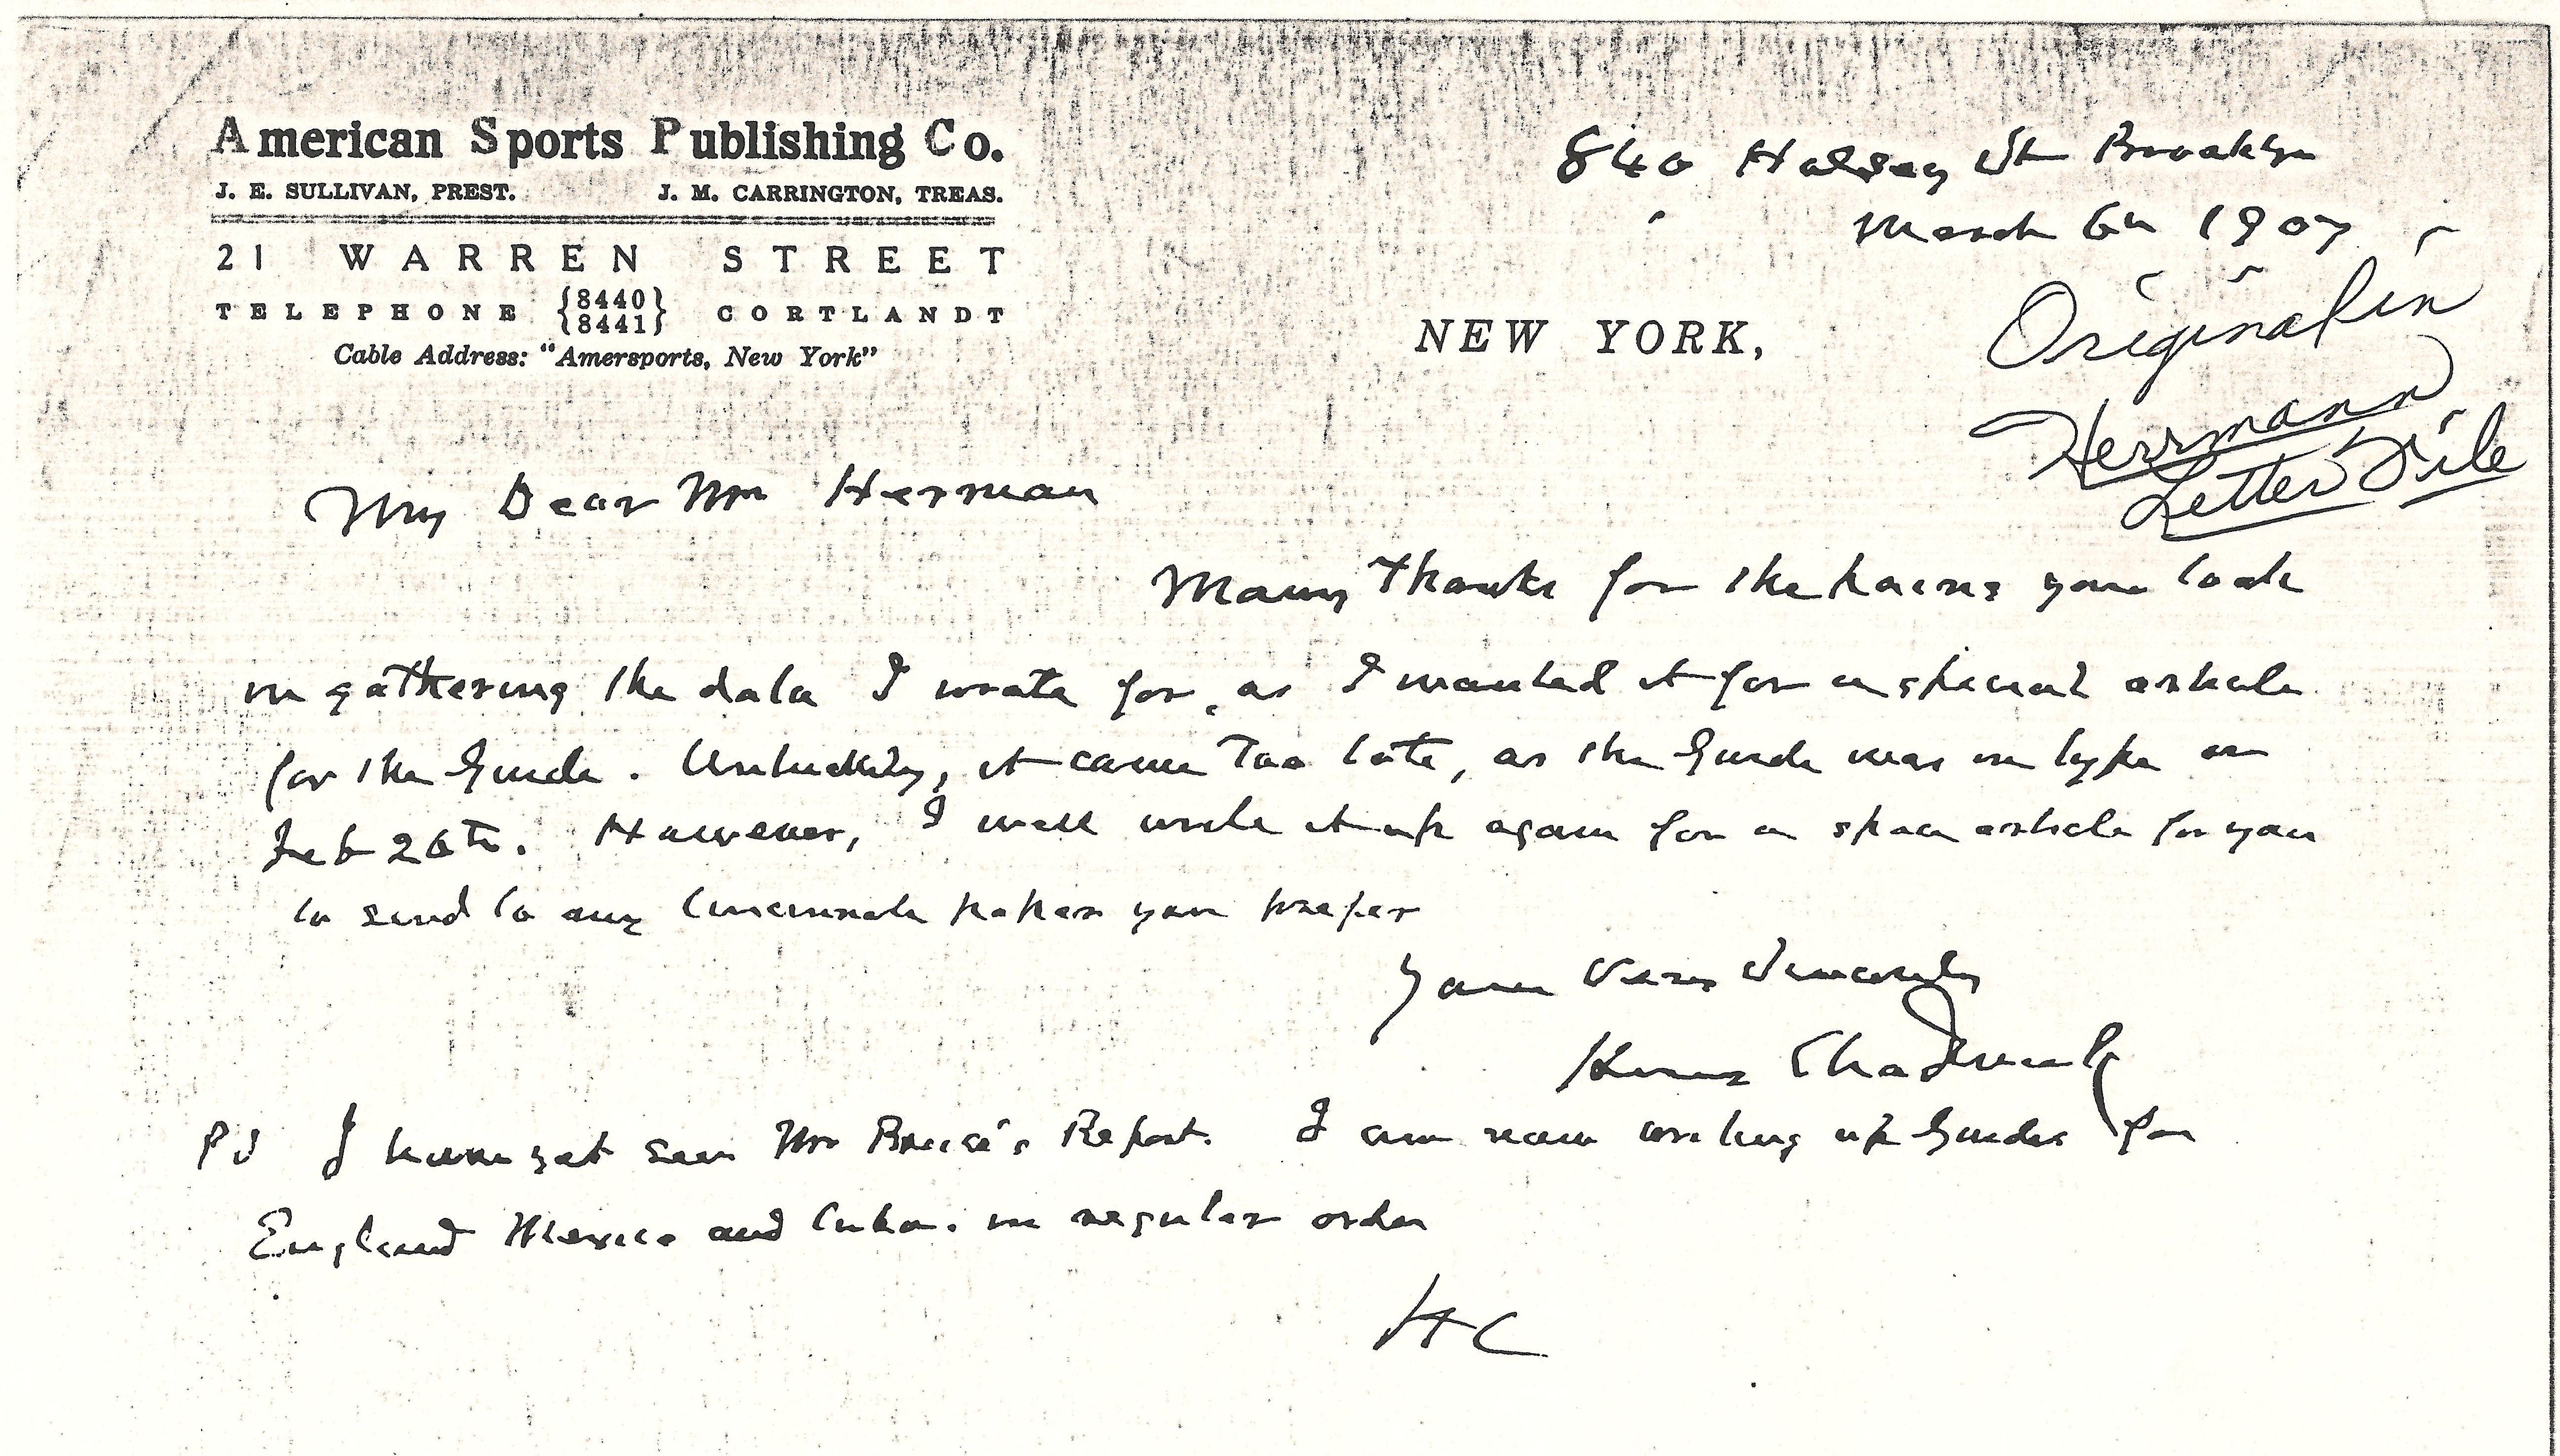 American Sports Publishing Co.
J. E. SULLIVAN, PREST. J. M. CARRINGTON, TREAS.
21 WARREN STREET
TELEPHONE {8440} {8441} CORTLANDT
Cable Address: "Amersports, New York"
840 Halsey St Brooklyn
March 6th 1907
NEW YORK,
Original in
Herrmann
Letter File
My Dear Mr Herman
Many Thanks for the pains you took
in gathering the data I wrote for, as I wanted it for a special article
for the Guide. Unluckily, it came Too late, as the Guide was in type on
Feb 26th. However, I will write it up again for a article for you
to send to any Cincinnati paper you prefer
Yours Very Sincerely
Henry Chadwick
PS I have yet seen Mr Report. I am now up Guides for
England Mexico and Cuba. in regular order
HC